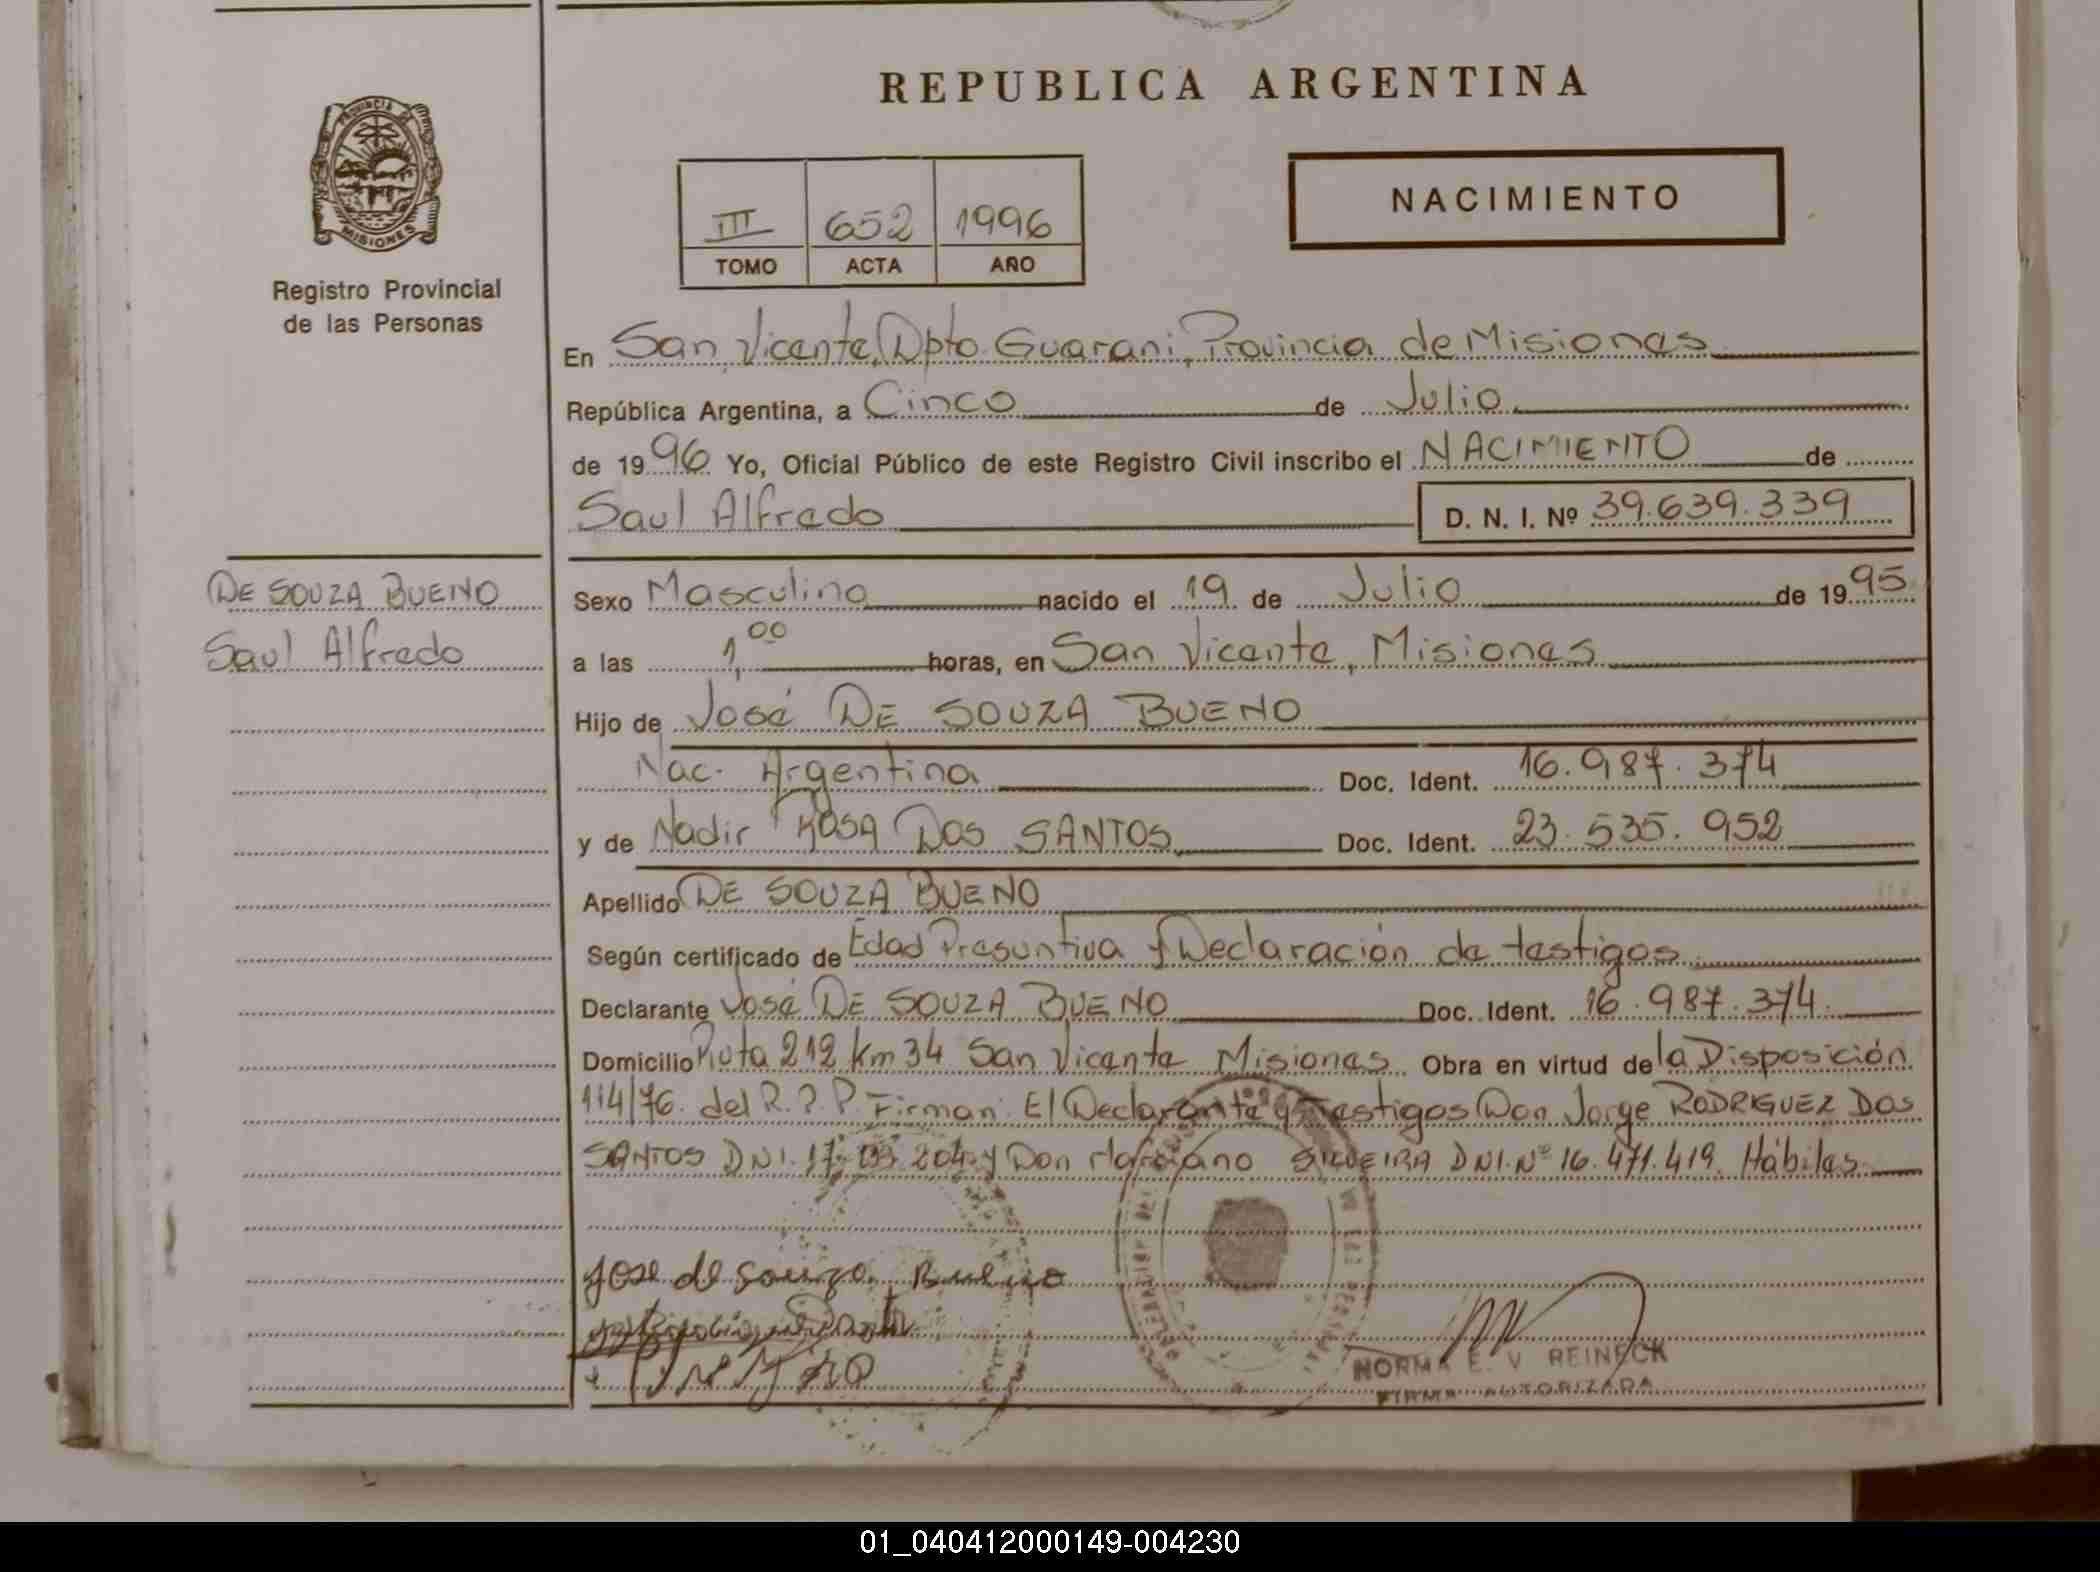 REPUBLICA ARGENTINA
PROVINCIA DE
MISIONES
Registro Provincial
de las Personas
III 652 1996
TOMO ACTA AÑO
NACIMIENTO
En San Vicente, Dpto. Guarani, Provincia de Misiones
República Argentina, a Cinco de Julio
de 1996 Yo, Oficial Público de este Registro Civil inscribo el NACIMIENTO de
Saul Alfredo D. N. I. Nº 39.639.339
DE SOUZA BUENO
Saul Alfredo
Sexo Masculino nacido el 19 de Julio de 1995
a las 1,00 horas, en San Vicente, Misiones
Hijo de José DE SOUZA BUENO
Nac. Argentina Doc. Ident. 16.987.374
y de Nadir ROSA DOS SANTOS Doc. Ident. 23.535.952
Apellido DE SOUZA BUENO
Según certificado de Edad Presuntiva y Declaración de testigos
Declarante José DE SOUZA BUENO Doc. Ident. 16.987.374.
Domicilio Ruta 212 Km 34 San Vicente Misiones. Obra en virtud de la Disposición
114/76. del R.P.P. Firman: El Declarante y Testigos Don Jorge RODRIGUEZ DOS
SANTOS DNI. 17. 204 y Don Marciano SILVEIRA DNI.Nº 16.471.419. Hábiles
Jose de Souza Bueno
NORMA E. V. REINECK
FIRMA AUTORIZADA
01_040412000149-004230